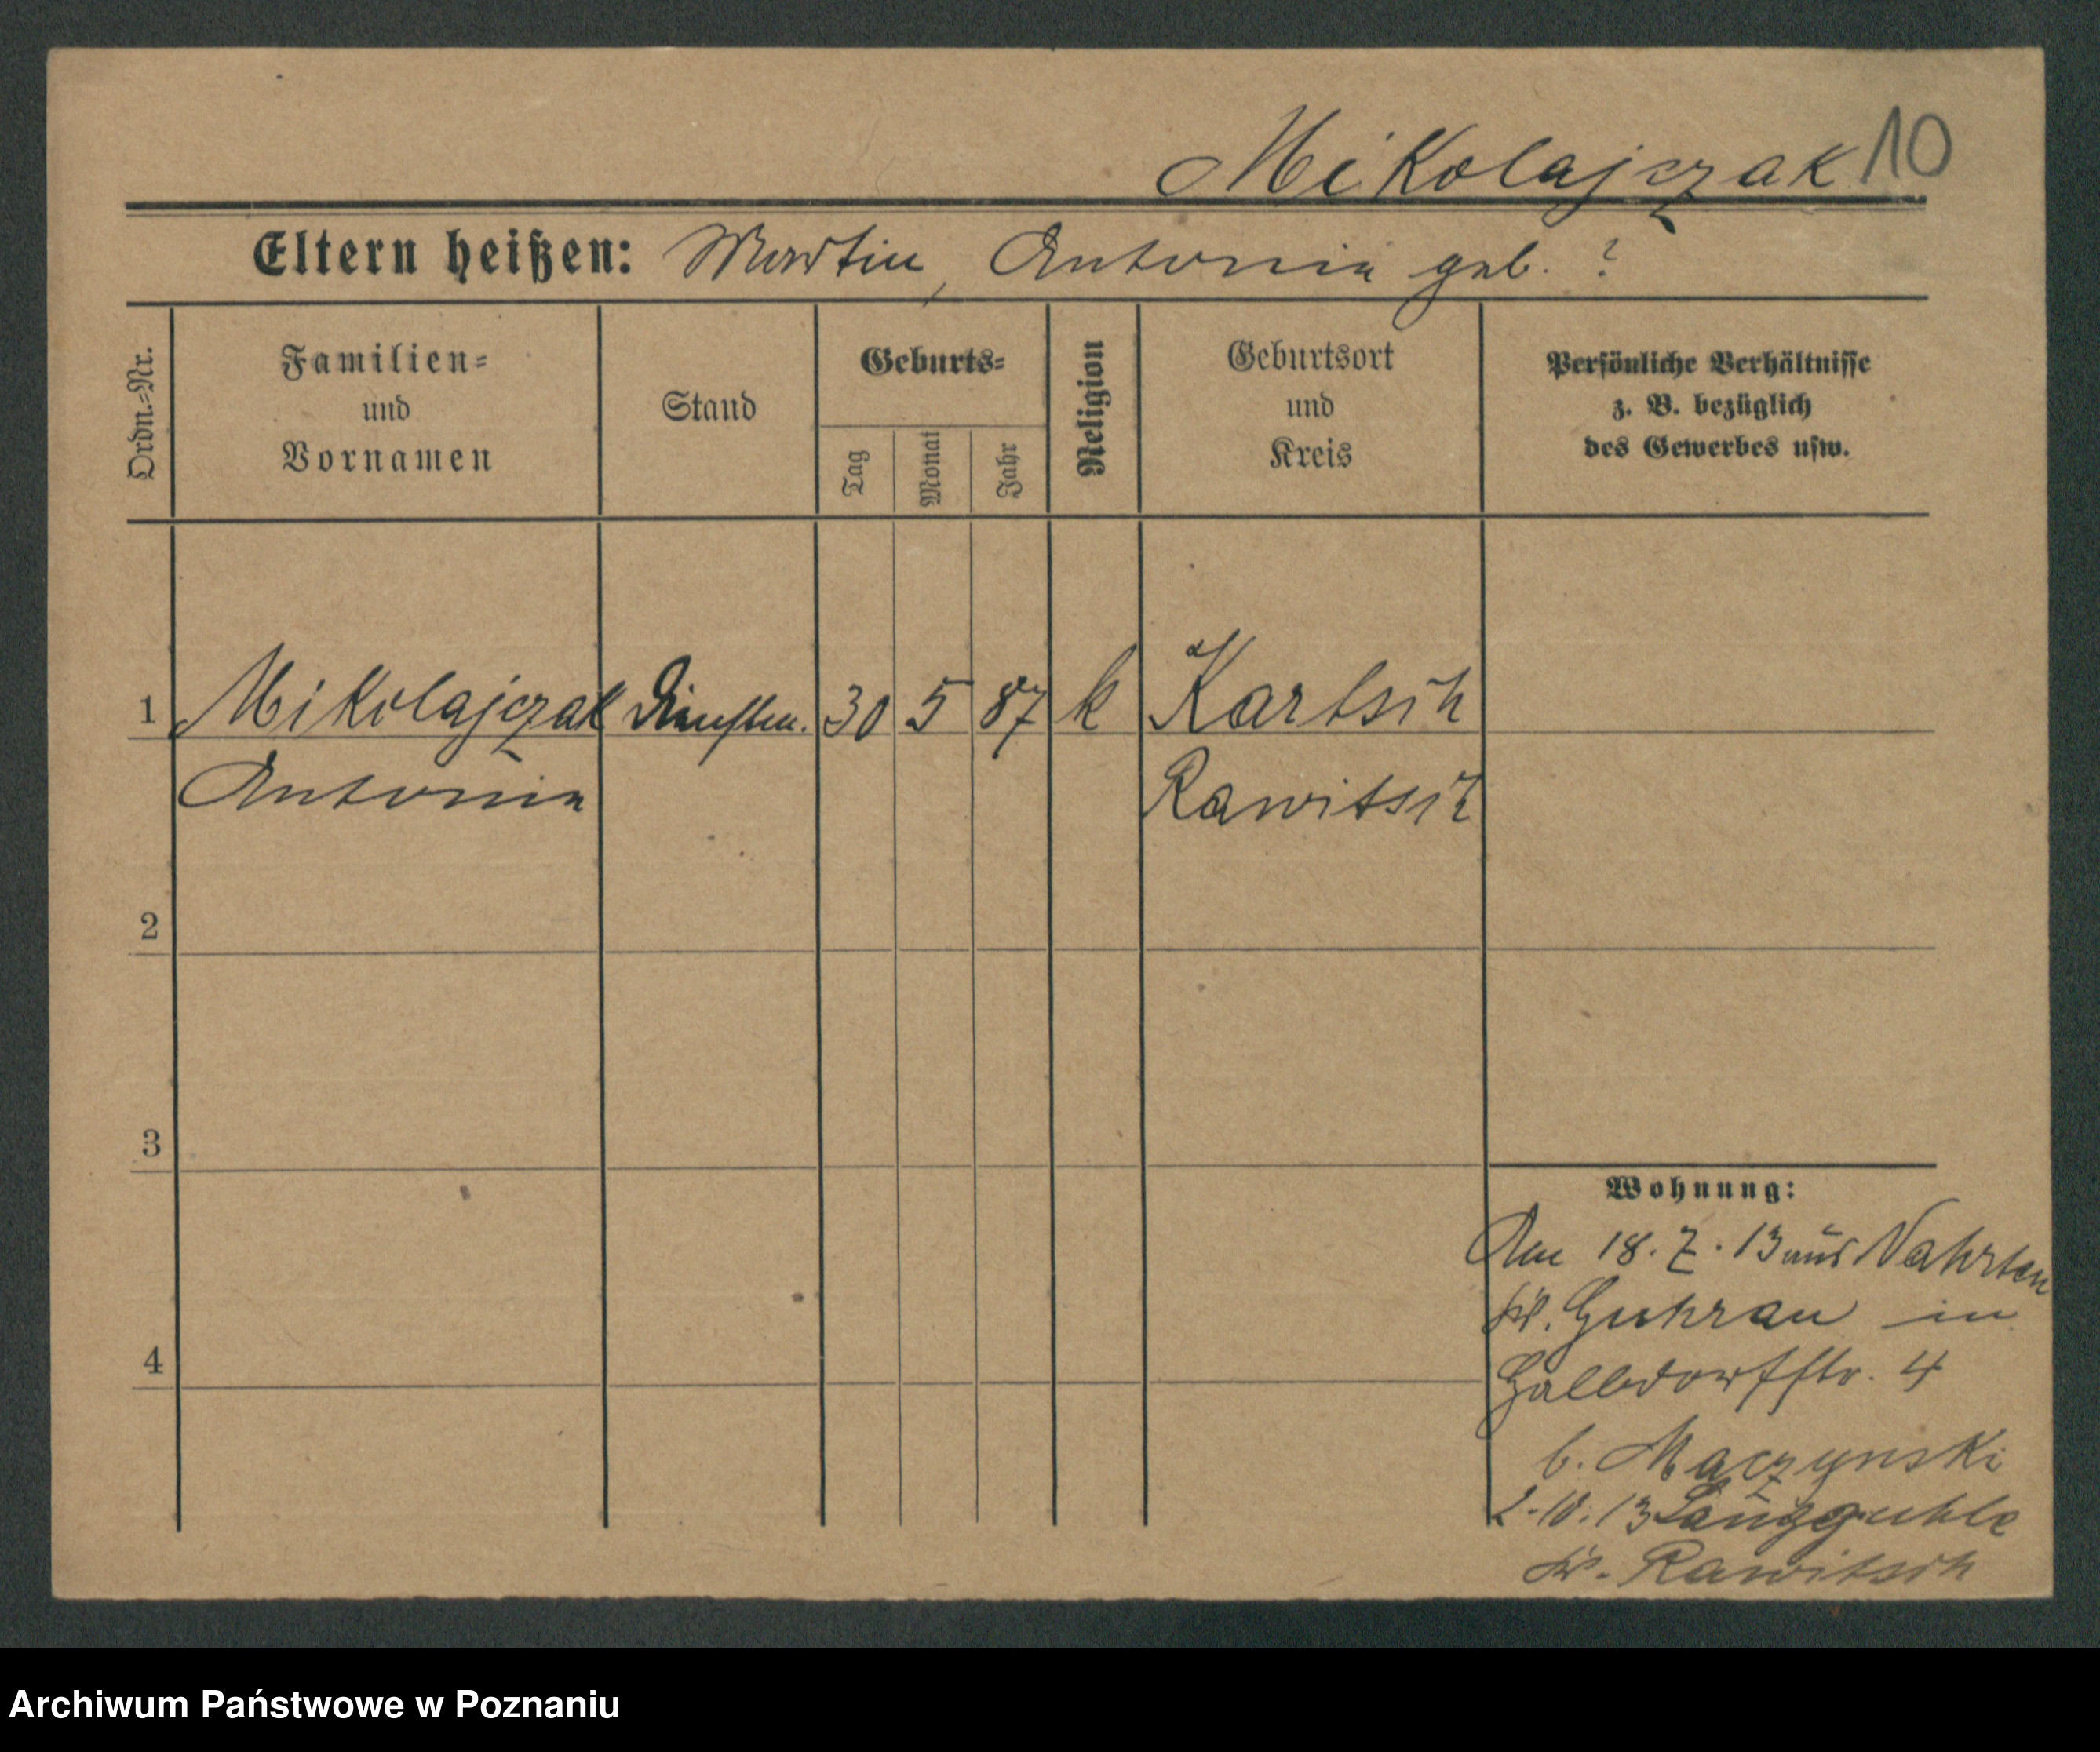 Mikolajczak 10
Eltern heißen: Martin, Antonia geb. ?
Ordn.-Nr.
Familien-
und
Vornamen
Stand
Geburts-
Tag
Monat
Jahr
Religion
Geburtsort
und
Kreis
Persönliche Verhältnisse
z. B. bezüglich
des Gewerbes usw.
1 Mikolajczak 30 5 87 k Kartsch
Antonia Rawitsch
2
3
4
Wohnung:
Am 18. 7. 13 aus Nahrten
Kr. Guhrau in
Halbdorfstr. 4
b. Maczynski
2.10.13 Langguhle
Kr. Rawitsch
Archiwum Państwowe w Poznaniu